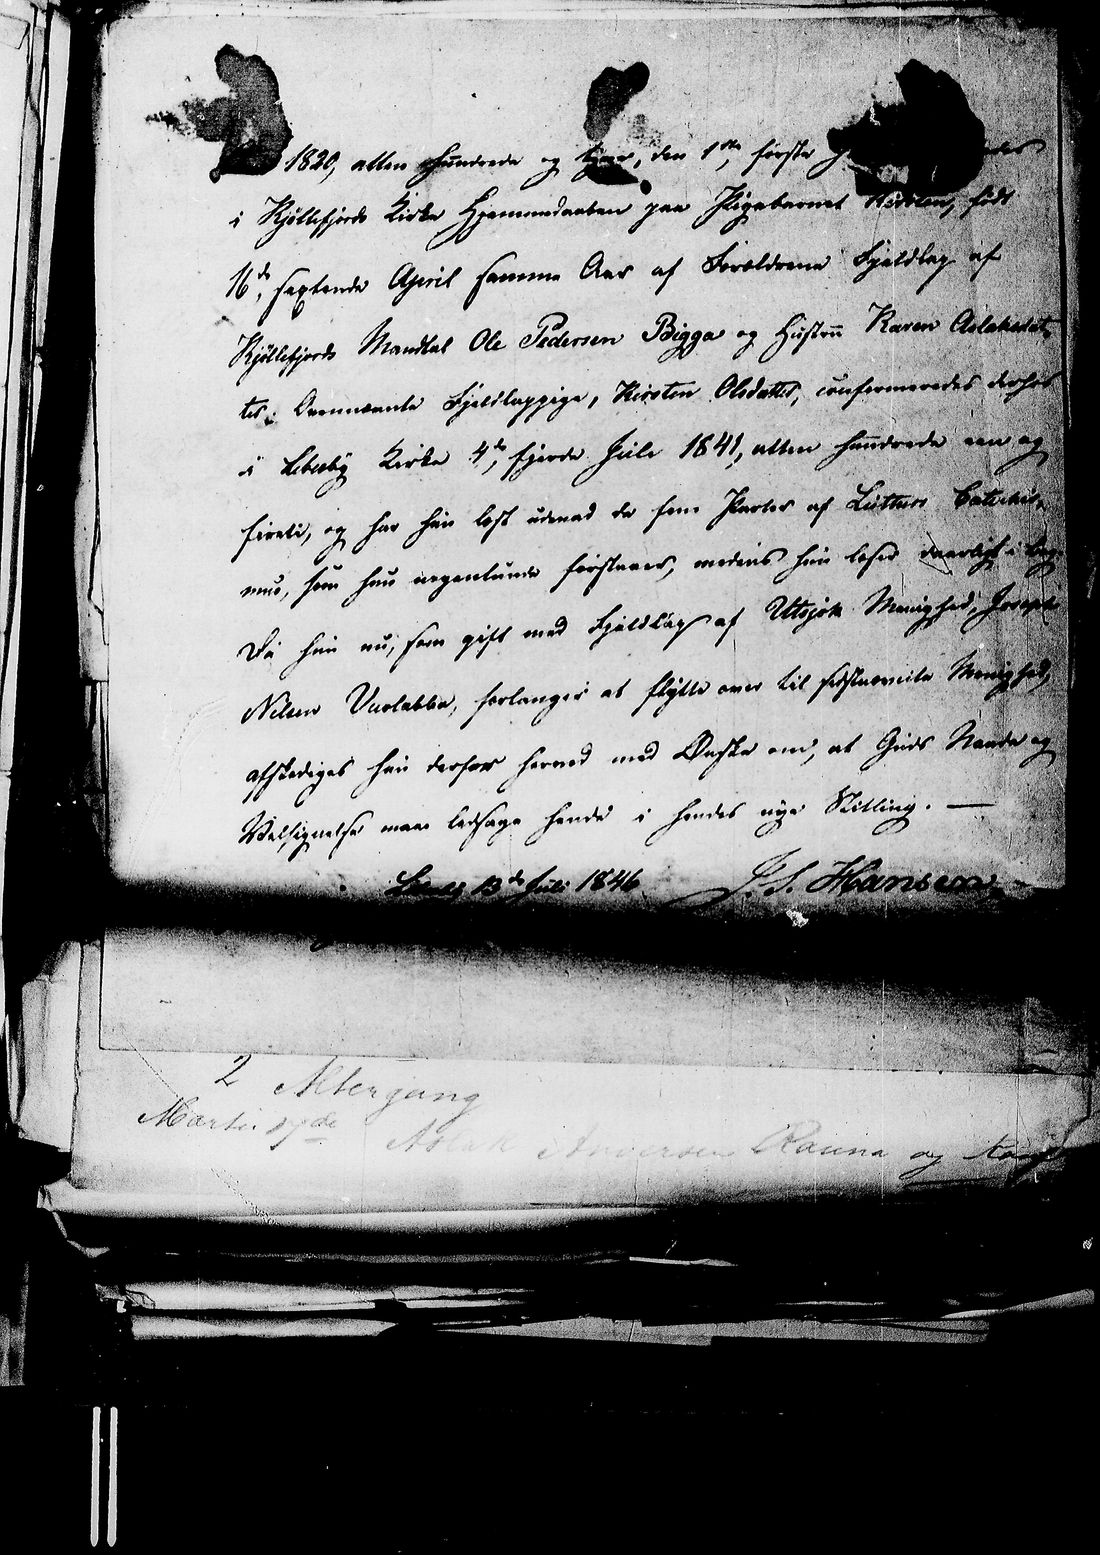 1820, atten Hundrede og tyve, den 1ste, første
i Kjøllefjords Kirke Hjemmedaaben paa Pigebarnet Kirsten, født
16de, sextende April samme Aar af Forældrene Fjeldlap af
Kjøllefjords Mandtal Ole Pedersen Bigga og Hustru Karen Aslaksdat-
ter. Ovennævnte Fjeldlappige, Kirsten Olsdatter, confirmeredes derhos
i Lebesby Kirke 4de, fjerde Juli 1841, atten hundrede een og
fireti, og har hun læst udenad de fem Parter af Luthers Catechis-
mus, som hun nogenlunde forstaaer, medens hun læser daarligt i Bog.
Da hun nu, som gift med Fjeldlap af Utsjok Menighed, Joseph
Nilsen Vuolabba, forlanger at flytte over til sidstnævnte Menighed,
afskediges hun derfor herved med Ønske om, at Guds Naade og
Velsignelse maae ledsage hende i hendes nye Stilling. —
13de Juli 1846 J. S. Hansen
2 Altergang
Marti 17de Aslak Andersen Rauna og